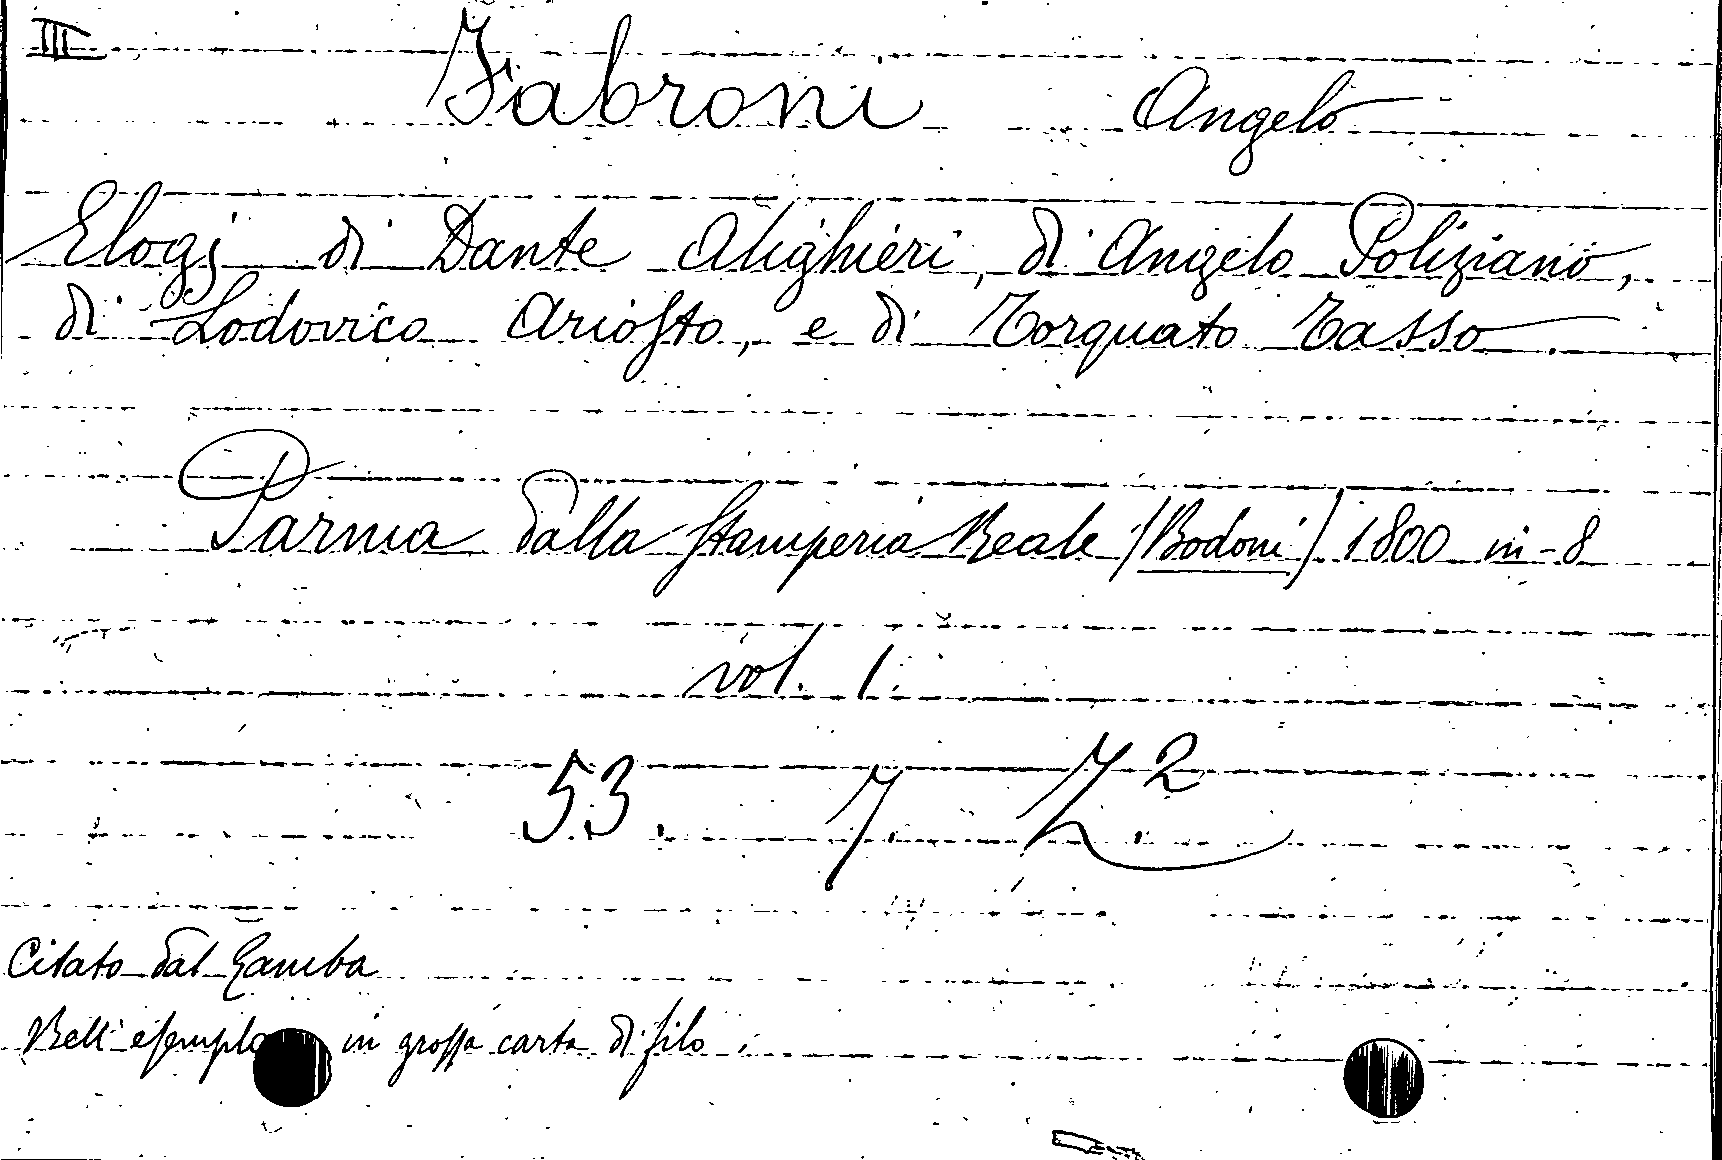 III
Fabroni Angelo
Elogj di Dante Alighieri, di Angelo Poliziano,
di Lodovico Ariosto, e di Torquato Tasso.
Parma dalla Stamperia Reale (Bodoni) 1800 in-8
vol. 1.
53. 7 72
Citato dal Gamba
Bell' in grossa carta di filo.